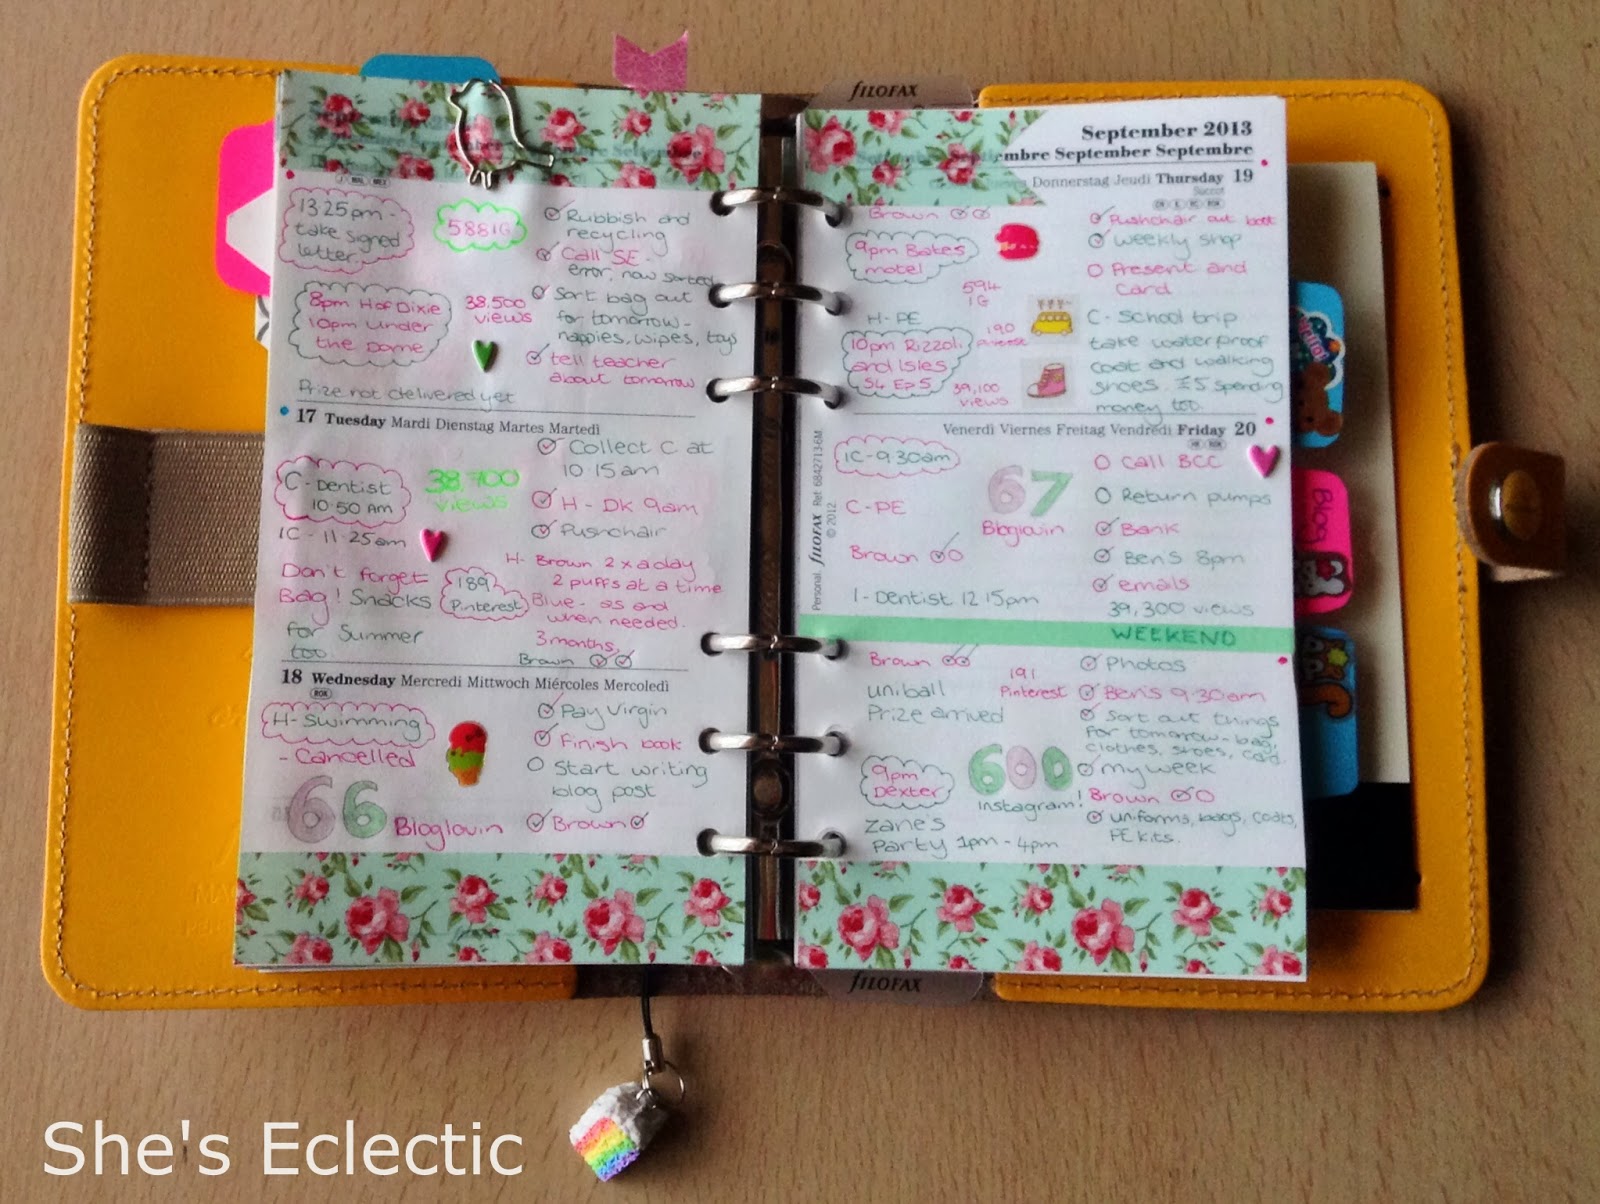 FILOFAX
13 25pm -
take signed
letter.
588 IG
Rubbish and
recycling
Call SE -
error, now sorted
8pm H of Dixie
10pm Under
the Dome
38,500
views
Sort bag out
for tomorrow -
nappies, wipes, toys
tell teacher
about tomorrow
Prize not delivered yet
17 Tuesday Mardi Dienstag Martes Martedì
C - Dentist
10.50 Am
38,700
views
Collect C at
10.15am
H - DK 9am
Pushchair
IC - 11.25am
Don't forget
Bag! Snacks
for Summer
too.
189
Pinterest
H- Brown 2 x a day
2 puffs at a time
Blue - as and
when needed.
3 months,
Brown
18 Wednesday Mercredi Mittwoch Miércoles Mercoledì
ROK
H- Swimming
- Cancelled
66 Bloglovin
Pay Virgin
Finish book
Start writing
blog post
Brown
September 2013
Septembre September Septiembre
Donnerstag Jeudi Thursday 19
Brown
9pm Bates
motel
594
IG
Pushchair out boot
weekly shop
Present and
Card
H - PE
10pm Rizzoli
and Isles
S4 Ep 5
190
Pinterest
39,100
views
C - School trip
take waterproof
coat and walking
shoes. £5 spending
money too.
Personal. FILOFAX Ref 68427 13-6M
© 2012
Venerdì Viernes Freitag Vendredi Friday 20
IC - 9.30am
C - PE
Brown
I - Dentist 12 15pm
67
Bloglovin
Call BCC
Return pumps
Bank
Ben's 8pm
emails
39,300 views
WEEKEND
Brown
uniball
Prize arrived
191
Pinterest
9pm
Dexter
600
instagram!
Zane's
Party 1pm - 4pm
Photos
Ben's 9.30am
Sort out things
for tomorrow - bag,
clothes, shoes, card.
my week
Brown
uniforms, bags, coats,
PE kits.
Blog
FILOFAX
She's Eclectic